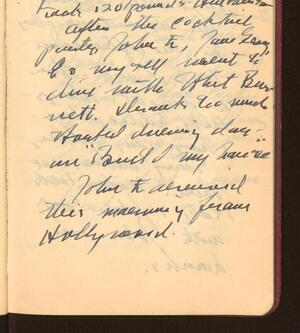 took 120 pounds
after the cocktail
party John K, Jane Gray,
& myself went to
dine with Whit Bur-
nett. Drank too much
Worked during day -
on "Build My
John K arrived
this morning from
Hollywood.